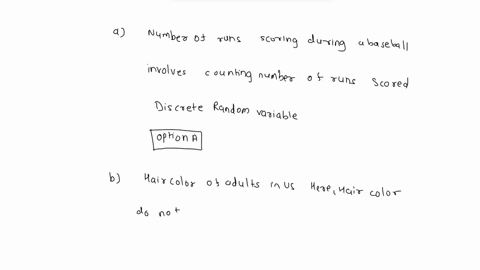 a) Number of runs scoring during a baseball
involves counting number of runs scored
Discrete Random variable
option A
b) Hair color of adults in US Here, Hair color
do not